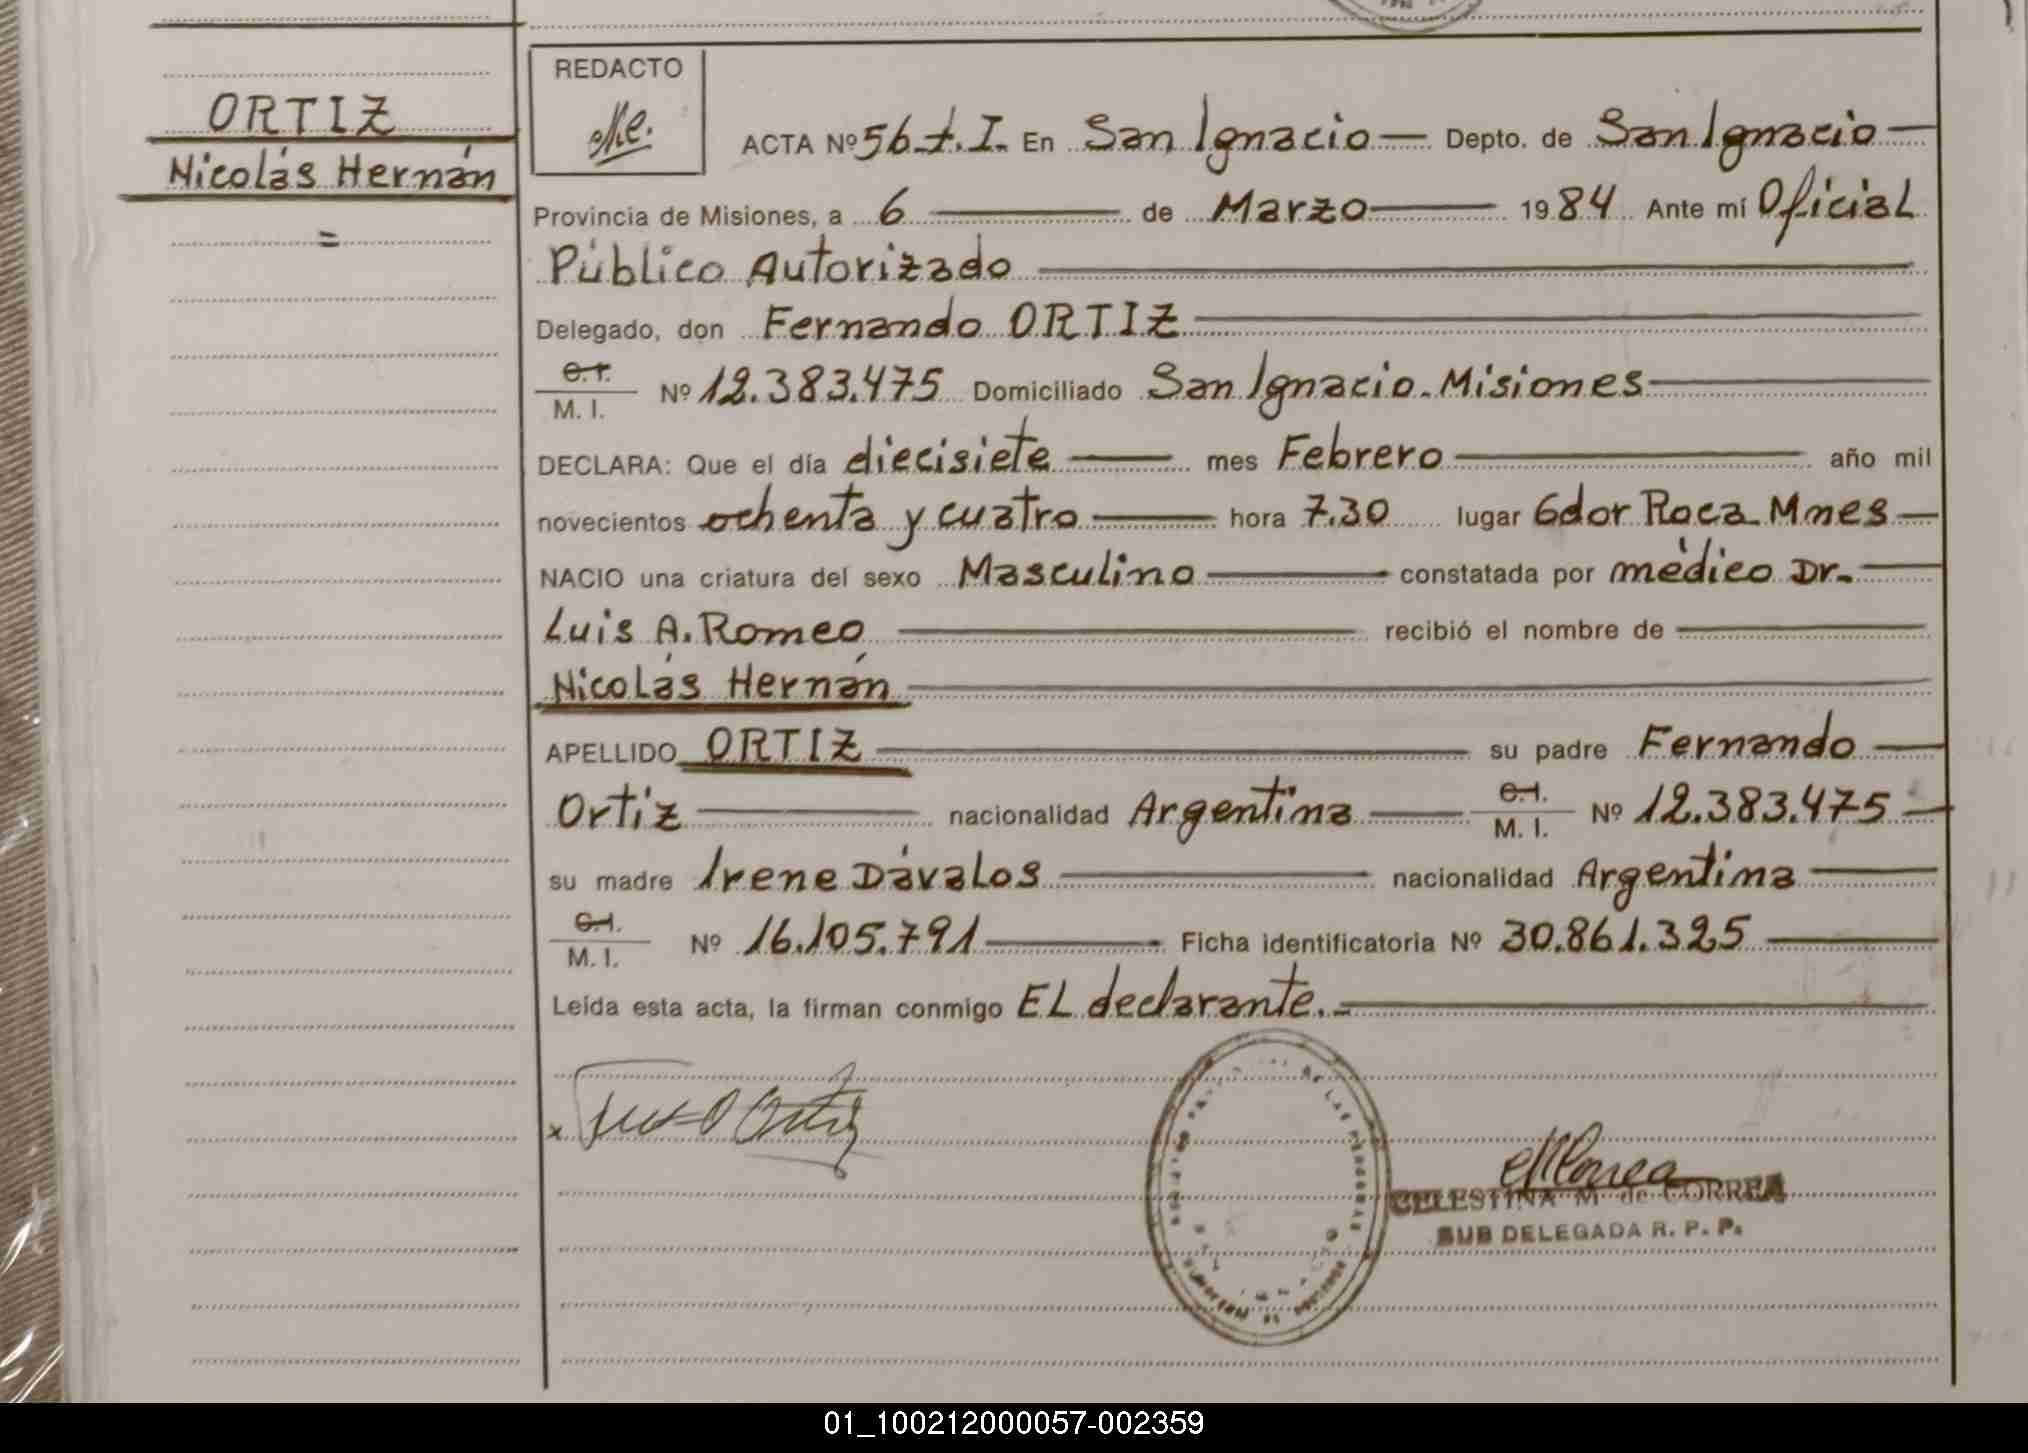 ORTIZ
Nicolás Hernán
=
REDACTO
ACTA Nº 56.t.I. En San Ignacio — Depto. de San Ignacio —
Provincia de Misiones, a 6 — de Marzo — 1984 Ante mí Oficial
Público Autorizado —
Delegado, don Fernando ORTIZ —
C.I.
M. I. Nº 12.383.475 Domiciliado San Ignacio. Misiones —
DECLARA: Que el día diecisiete — mes Febrero — año mil
novecientos ochenta y cuatro — hora 7.30 lugar Gdor Roca Mnes —
NACIO una criatura del sexo Masculino — constatada por médico Dr. —
Luis A. Romeo — recibió el nombre de —
Nicolás Hernán —
APELLIDO ORTIZ — su padre Fernando —
Ortiz — nacionalidad Argentina — C.I. M. I. Nº 12.383.475 —
su madre Irene Dávalos — nacionalidad Argentina —
C.I.
M. I. Nº 16.105.791 — Ficha identificatoria Nº 30.861.325 —
Leída esta acta, la firman conmigo EL declarante. —
CELESTINA M de CORREA
SUB DELEGADA R. P. P.
01_100212000057-002359